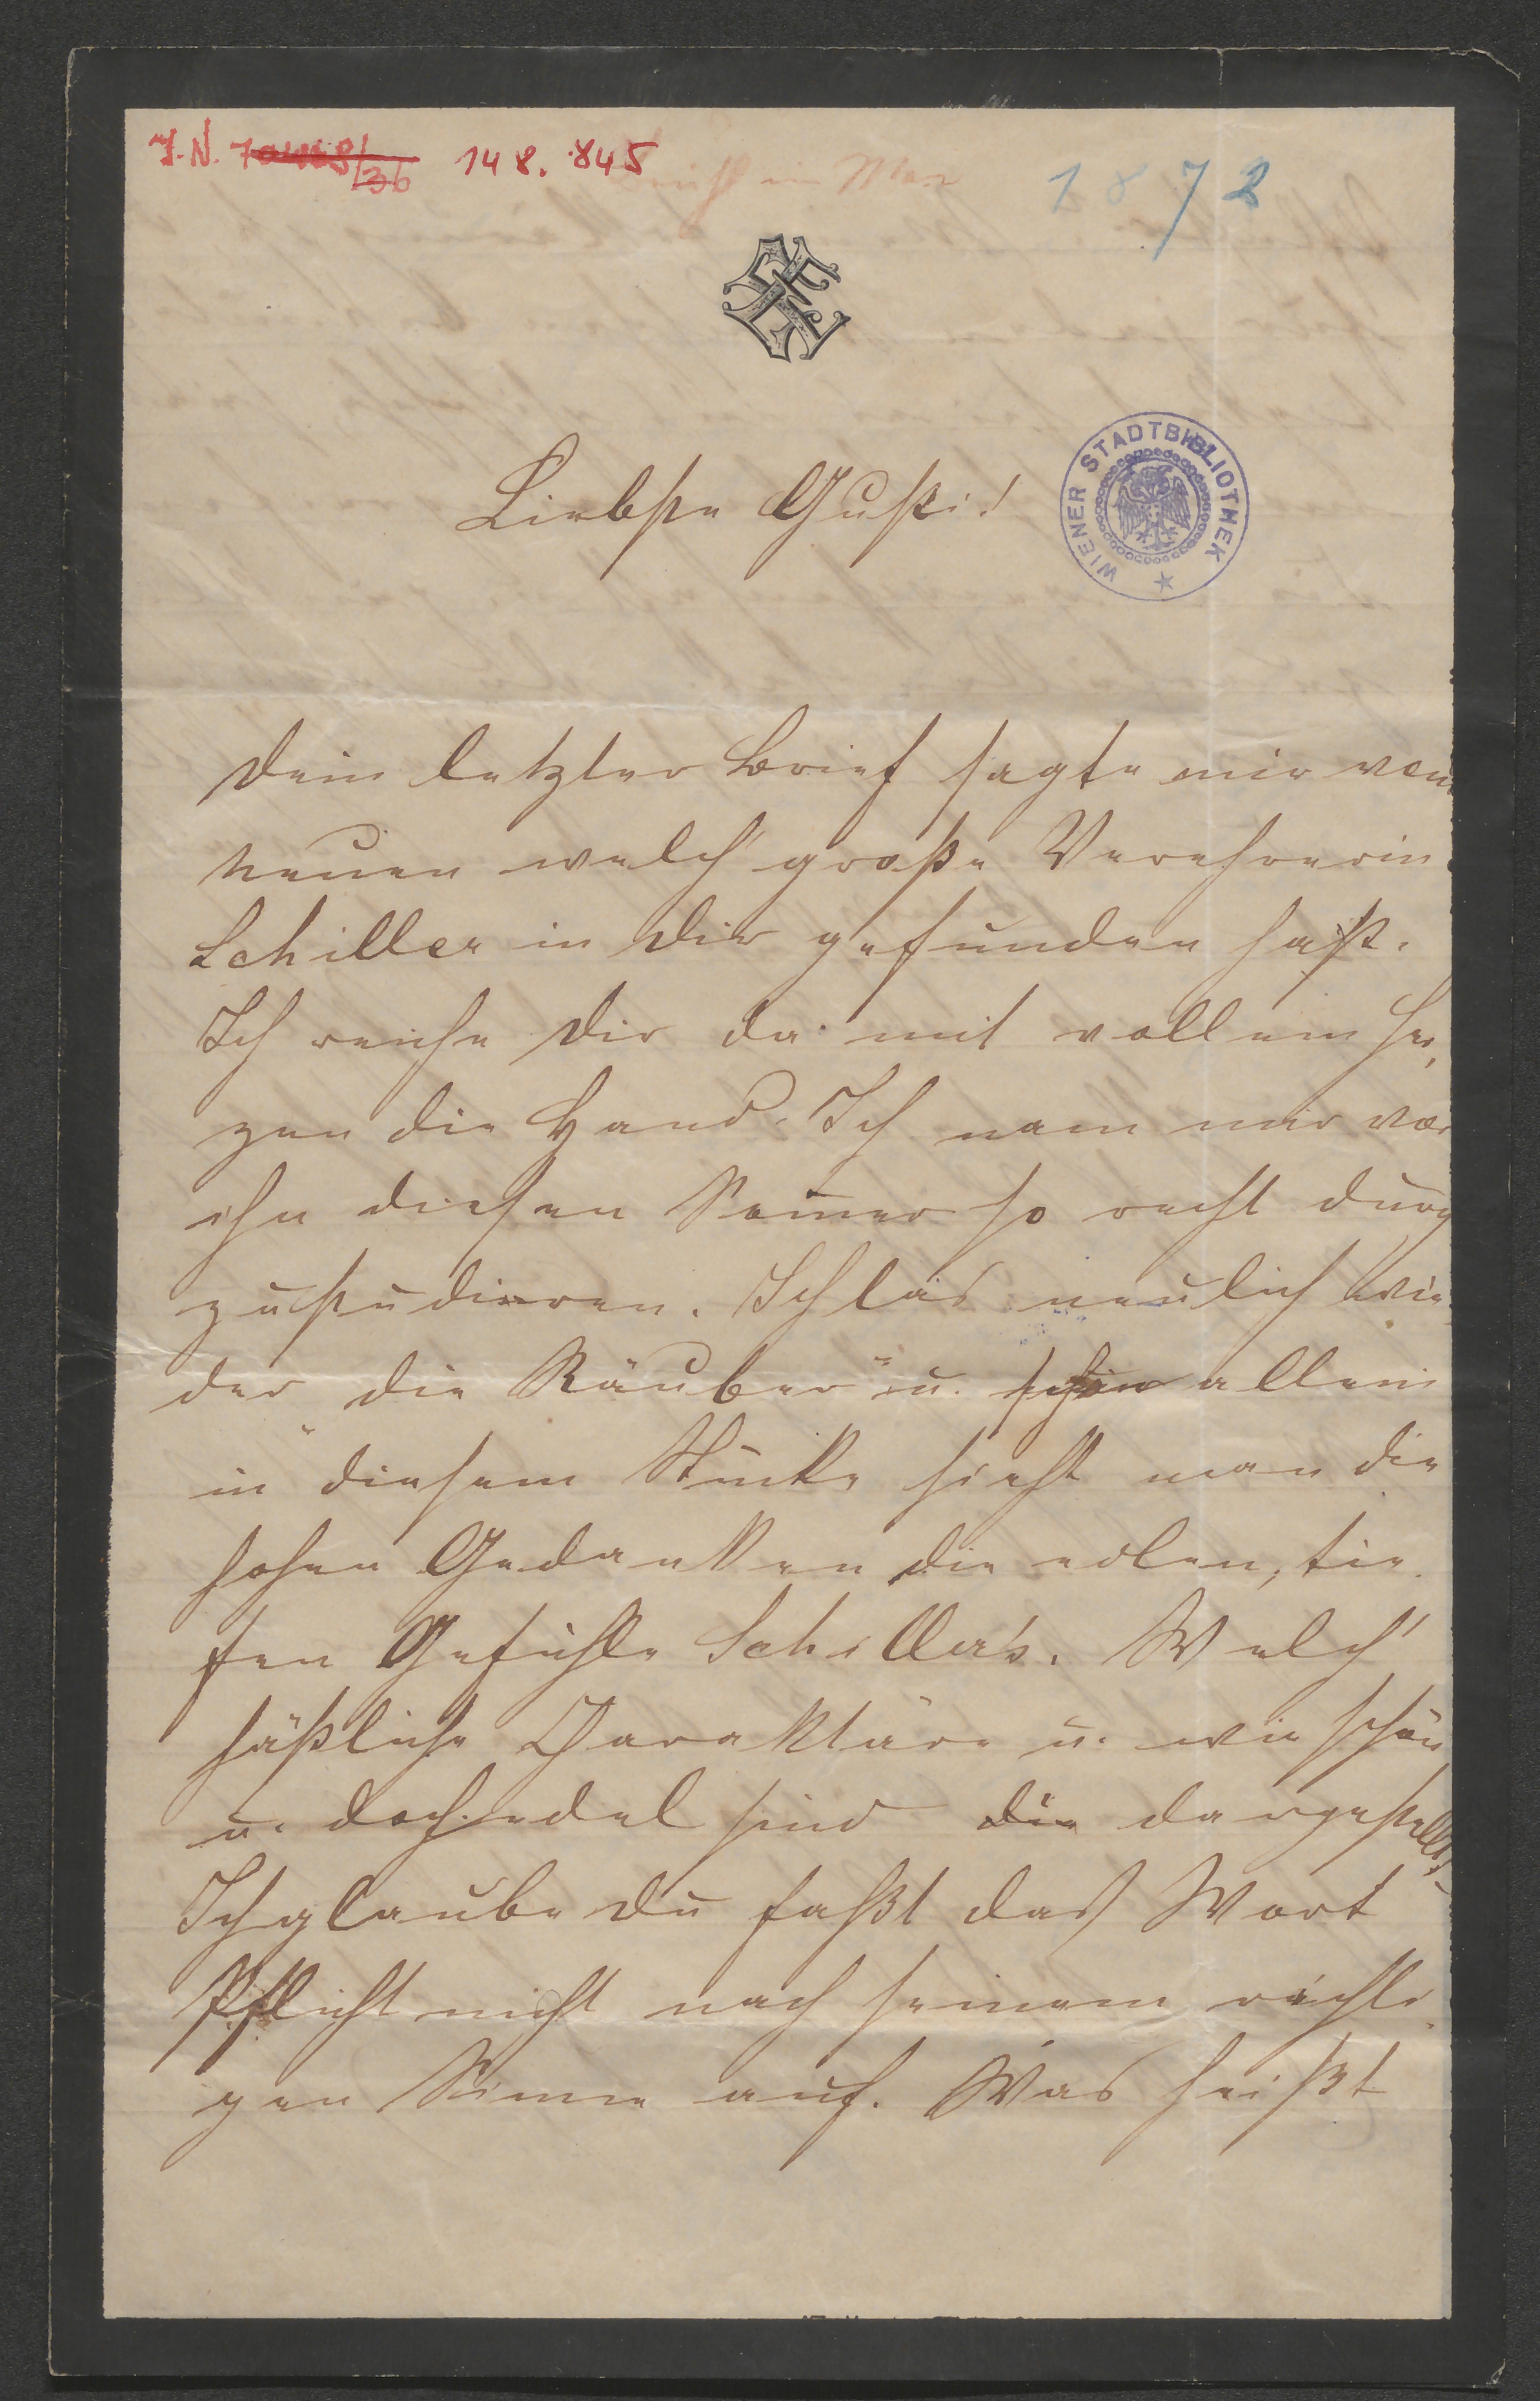 J. N. 70468/36 148.845
1872
WIENER STADTBIBLIOTHEK
Liebste Gusti!
Dein letzter Brief sagte mir von
neuen welch' große Verehrerin
Schiller in Dir gefunden hast.
Ich reiche Dir da mit vollem Her,
zen die Hand. Ich nam mir vor
ihn diesen Somer so recht durch
zustudieren. Ich las neulich wie
der die „Räuber" u. schon allein
in diesem Stücke sieht man die
hohen Gedanken die edlen, tie
fen Gefühle Schiller's. Welch'
häßliche Charaktäre u. wie schön
u. doch edel sind die dargestellt,
Ich glaube Du faßt das Wort
Pflicht nicht nach seinem richti
gen Sinne auf. Was heißt